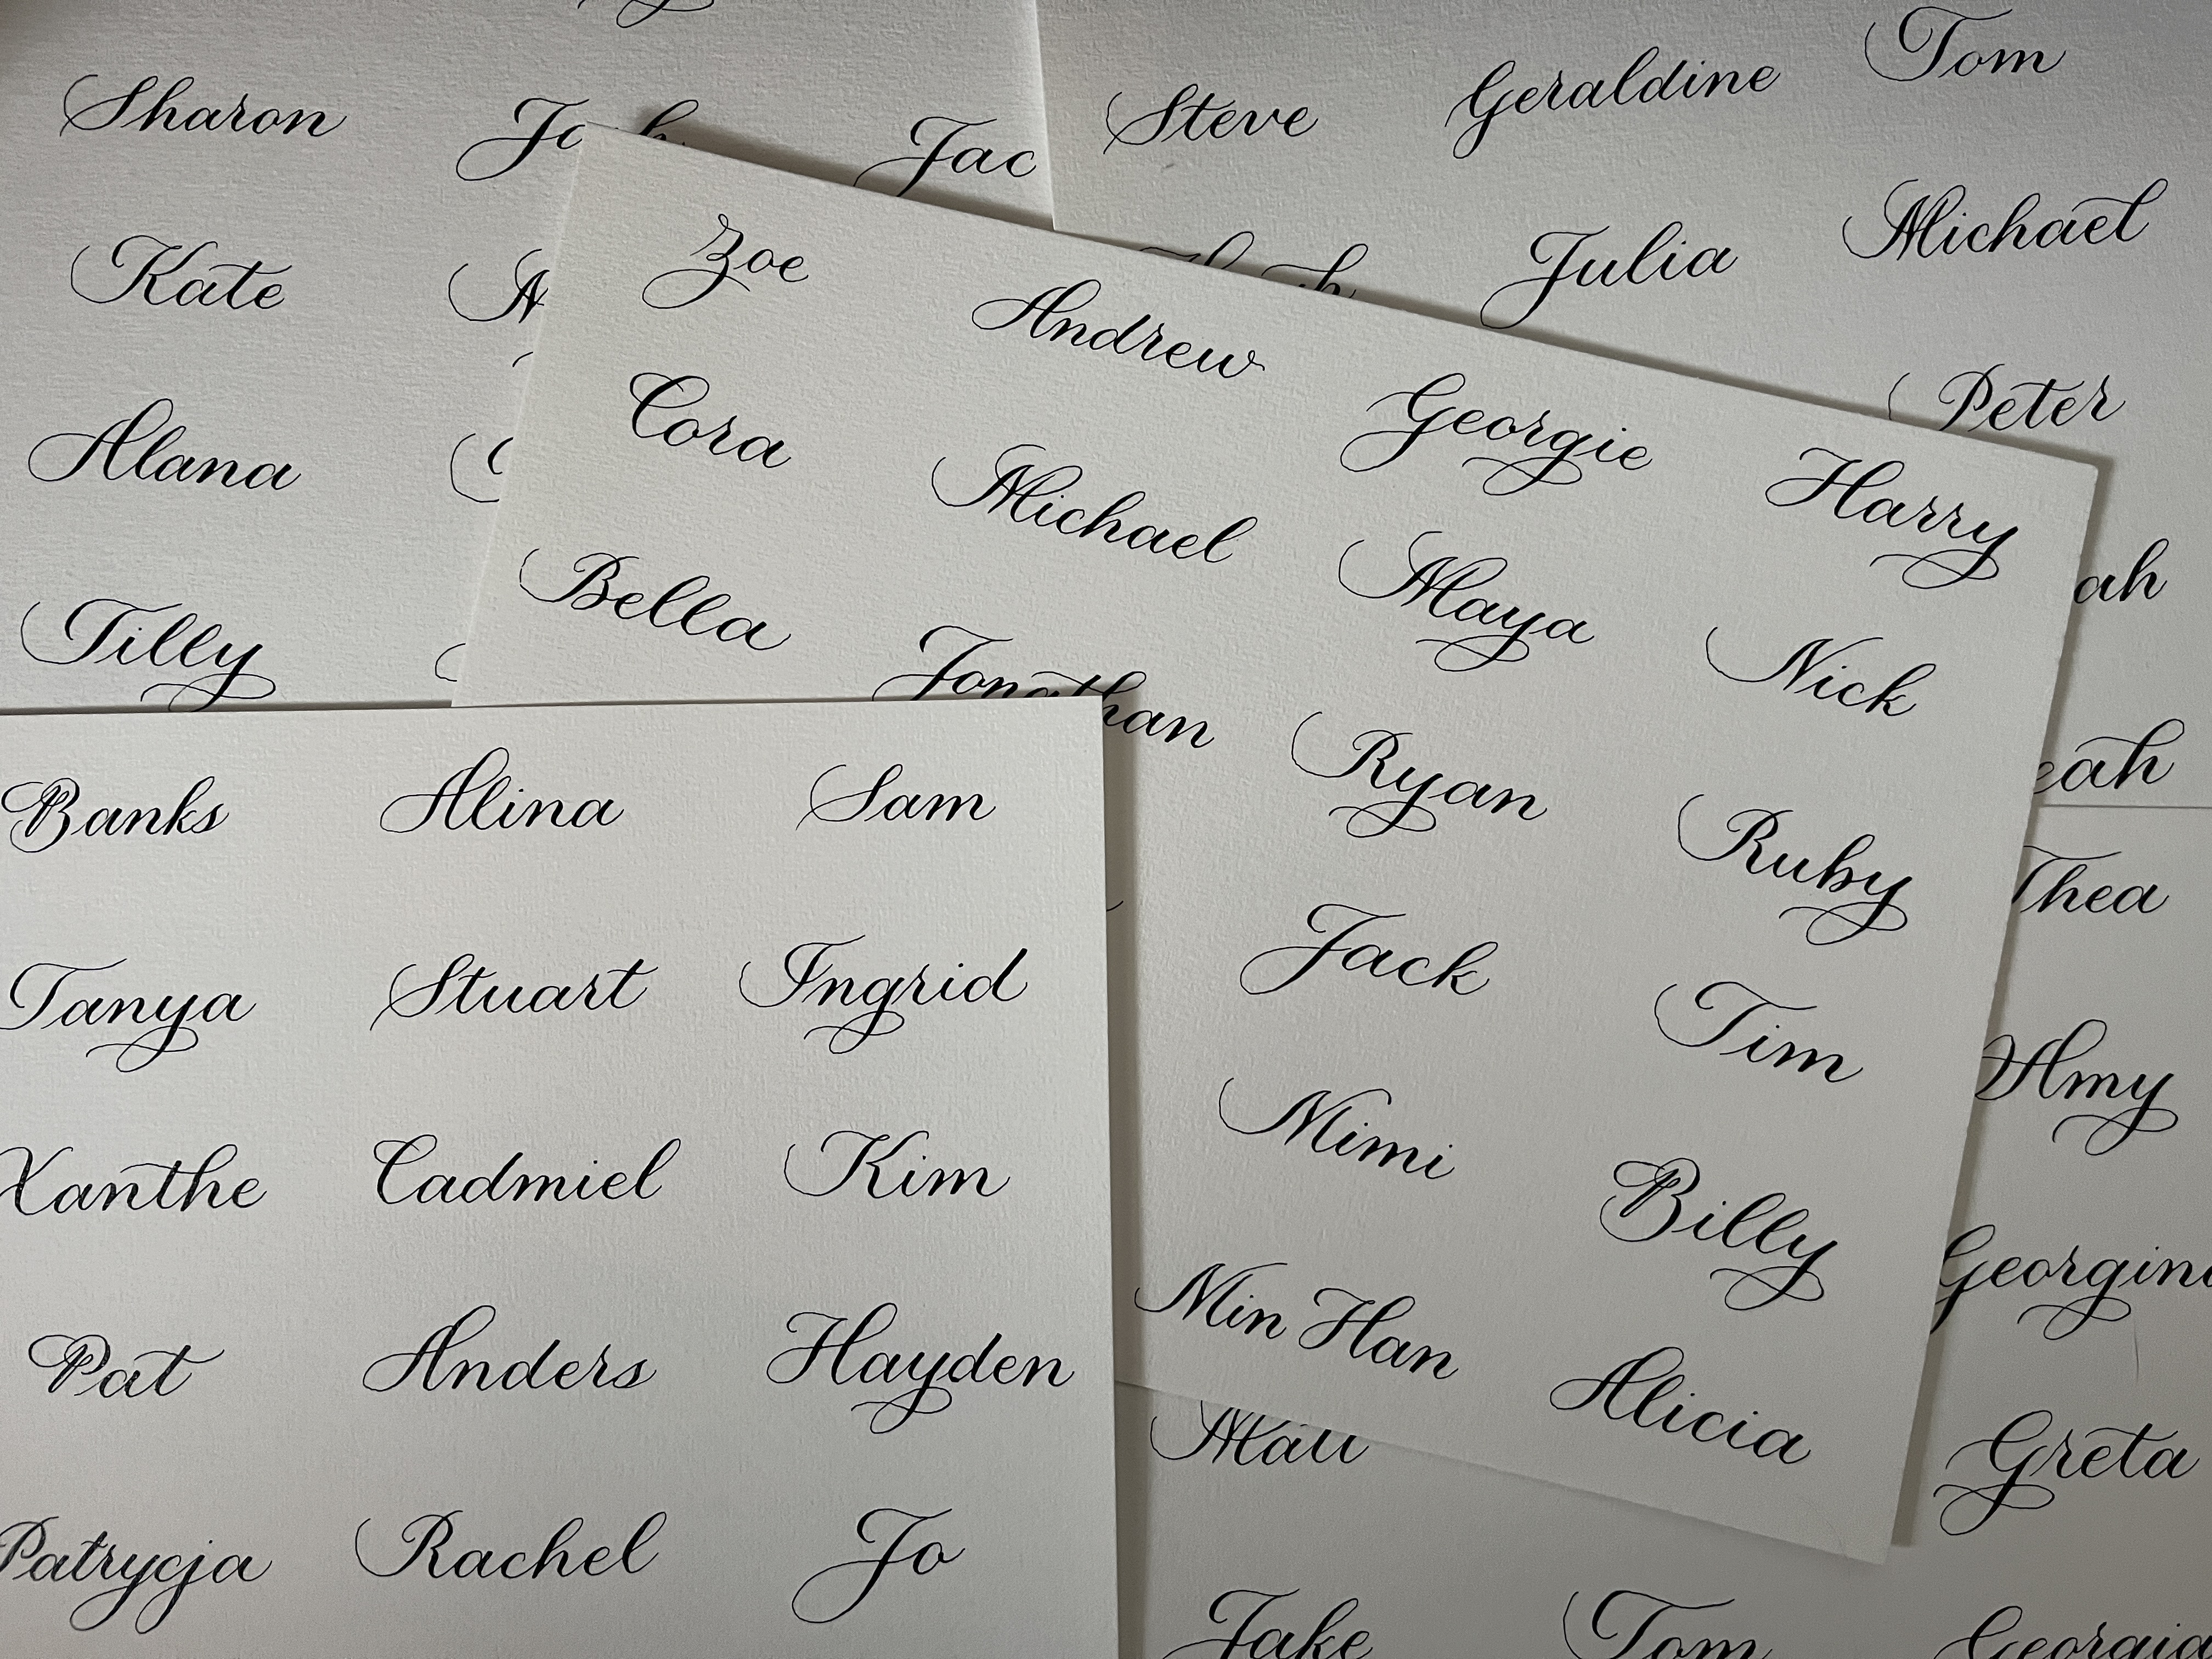 Sharon
Kate
Alana
Tilly
Jac
Steve Geraldine Tom
Julia Michael
Peter
Zoe Andrew Georgie Harry
Cora Michael Maya Nick
Bella Jonathan Ryan Ruby
Jack Tim
Mimi Billy
Min Han Alicia
Banks Alina Sam
Tanya Stuart Ingrid
Xanthe Cadmiel Kim
Pat Anders Hayden
Patrycja Rachel Jo
ah
eah
Thea
Amy
Georgin
Greta
Jake Tom Georgia